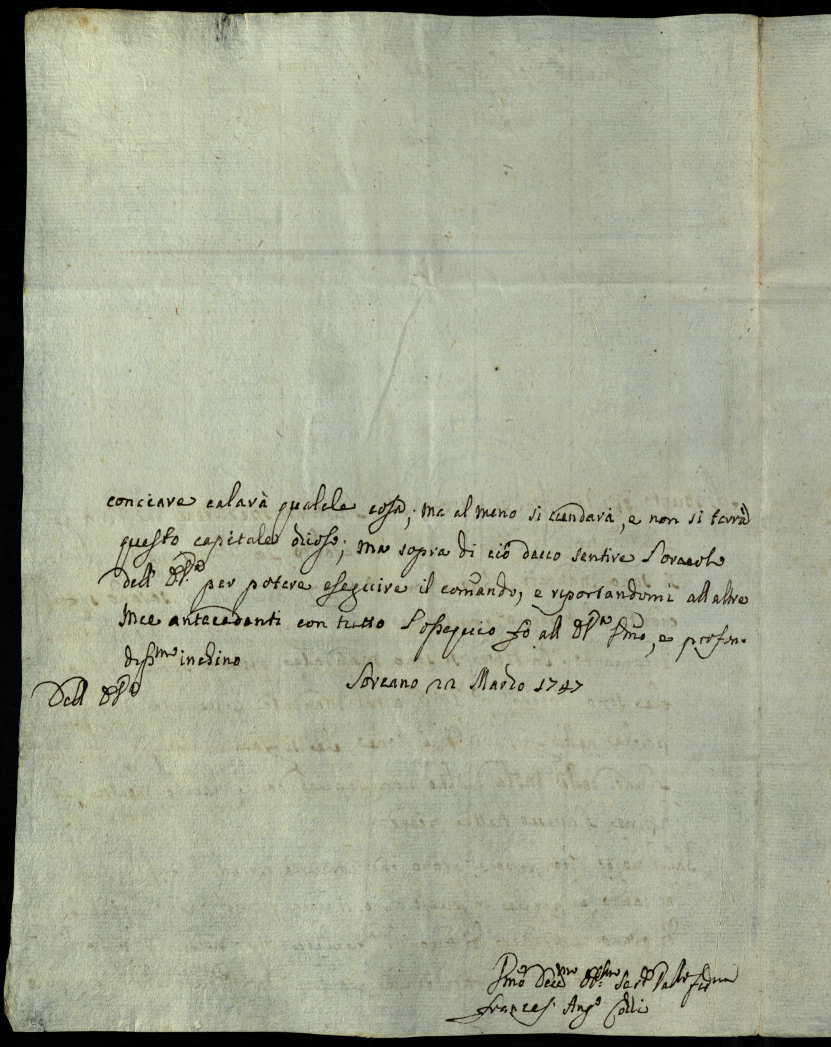 conciare calarà qualche cosa; ma al meno si vendarà, e non si terrà
questo capitale otioso; ma sopra di ciò devo sentire l'oracolo
dell' per potere eseguire il comando, e riportandomi all altre
mee antecedenti con tutto l'ossequio fò all , e profon-
diss.mo inchino
Soreano 22 Marzo 1747
Dell
Serv.
Frances. Ang.o Colli